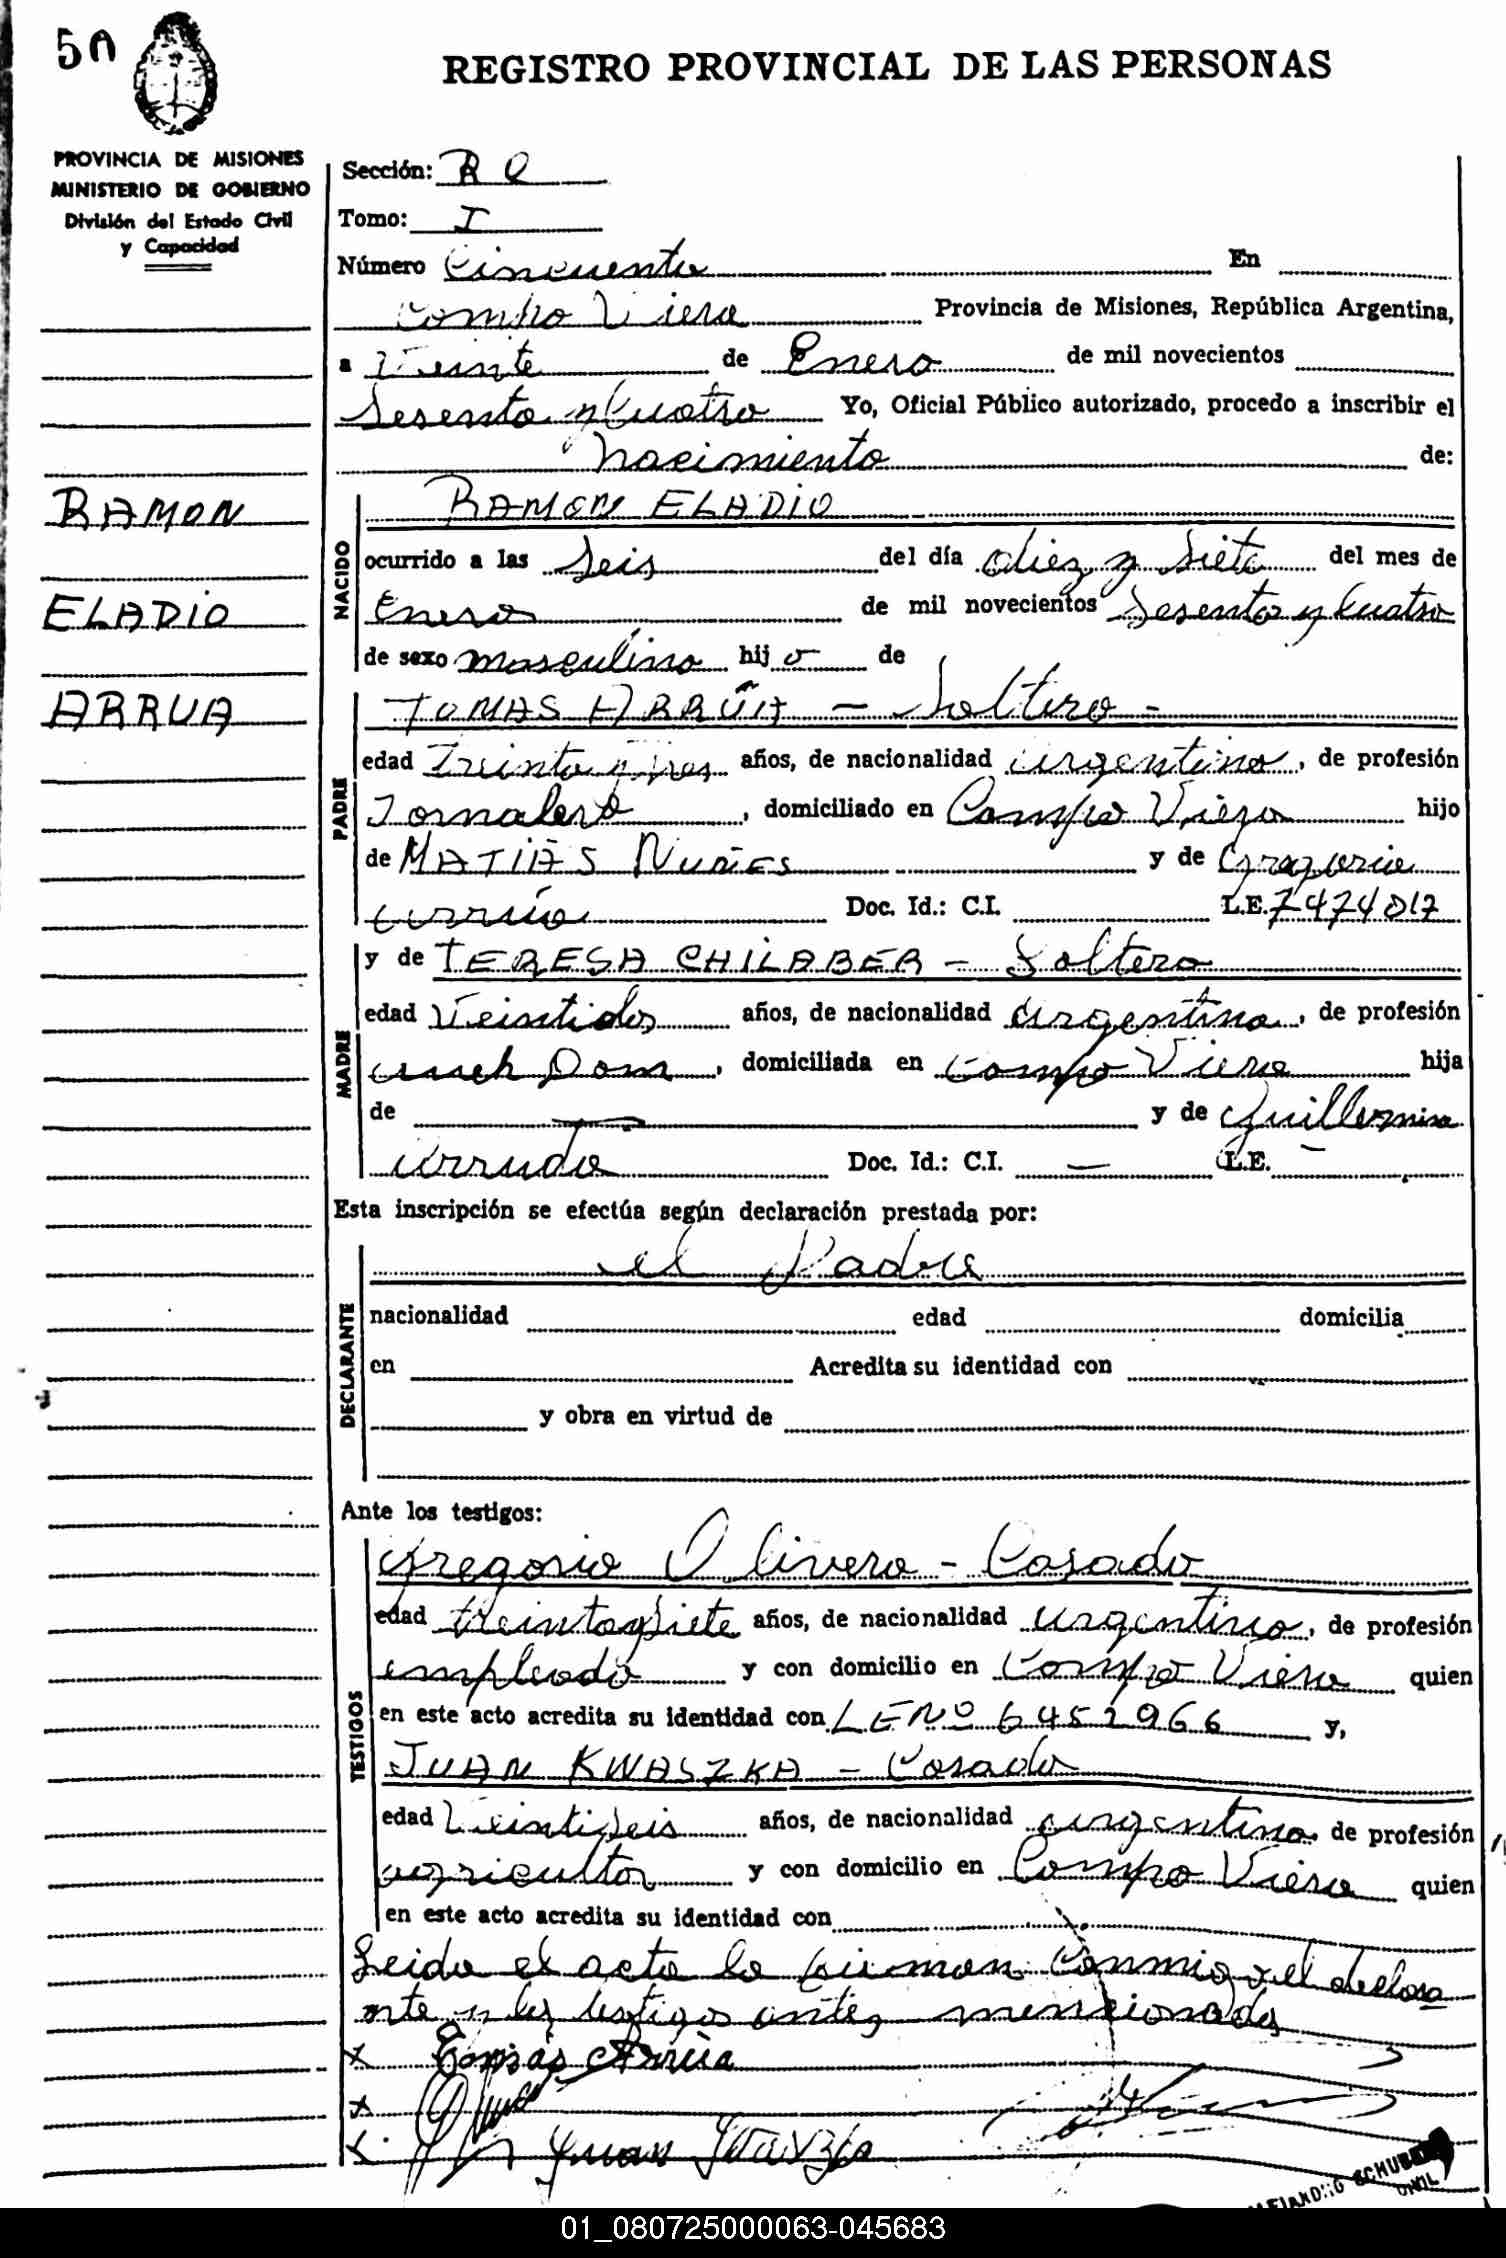 50
REGISTRO PROVINCIAL DE LAS PERSONAS
PROVINCIA DE MISIONES
MINISTERIO DE GOBIERNO
División del Estado Civil
y Capacidad
Sección: R Q
Tomo: I
Número Cincuenta En
Campo Viera Provincia de Misiones, República Argentina,
a Veinte de Enero de mil novecientos
Sesenta y Cuatro Yo, Oficial Público autorizado, procedo a inscribir el
nacimiento de:
RAMON
ELADIO
ARRUA
NACIDO
RAMON ELADIO
ocurrido a las Seis del día diez y Siete del mes de
Enero de mil novecientos Sesenta y Cuatro
de sexo masculino hijo de
PADRE
TOMAS ARRÚA - Soltero -
edad Treinta y Tres años, de nacionalidad argentino, de profesión
Jornalero, domiciliado en Campo Viera hijo
de MATIAS NUÑES y de
arrúa Doc. Id.: C.I. L.E. 7474017
MADRE
y de TERESA CHILABER - Soltera
edad Veintidos años, de nacionalidad argentina, de profesión
Dom, domiciliada en Campo Viera hija
de — y de Guillermina
arruda Doc. Id.: C.I. — L.E. —
Esta inscripción se efectúa según declaración prestada por:
DECLARANTE
el Padre
nacionalidad edad domicilia
en Acredita su identidad con
y obra en virtud de
Ante los testigos:
TESTIGOS
Gregorio Olivera - Casado
edad treintaysiete años, de nacionalidad argentino, de profesión
empleado y con domicilio en Campo Viera quien
en este acto acredita su identidad con LE Nº 6452966 y,
JUAN KWASZKA - Casado
edad Veintiseis años, de nacionalidad argentino, de profesión
agricultor y con domicilio en Campo Viera quien
en este acto acredita su identidad con
Leida el acta la firman conmigo el declara
nte y los testigos antes mencionados
x Tomás Arrúa
x
x Juan
SCHUBE
CIVIL
01_080725000063-045683